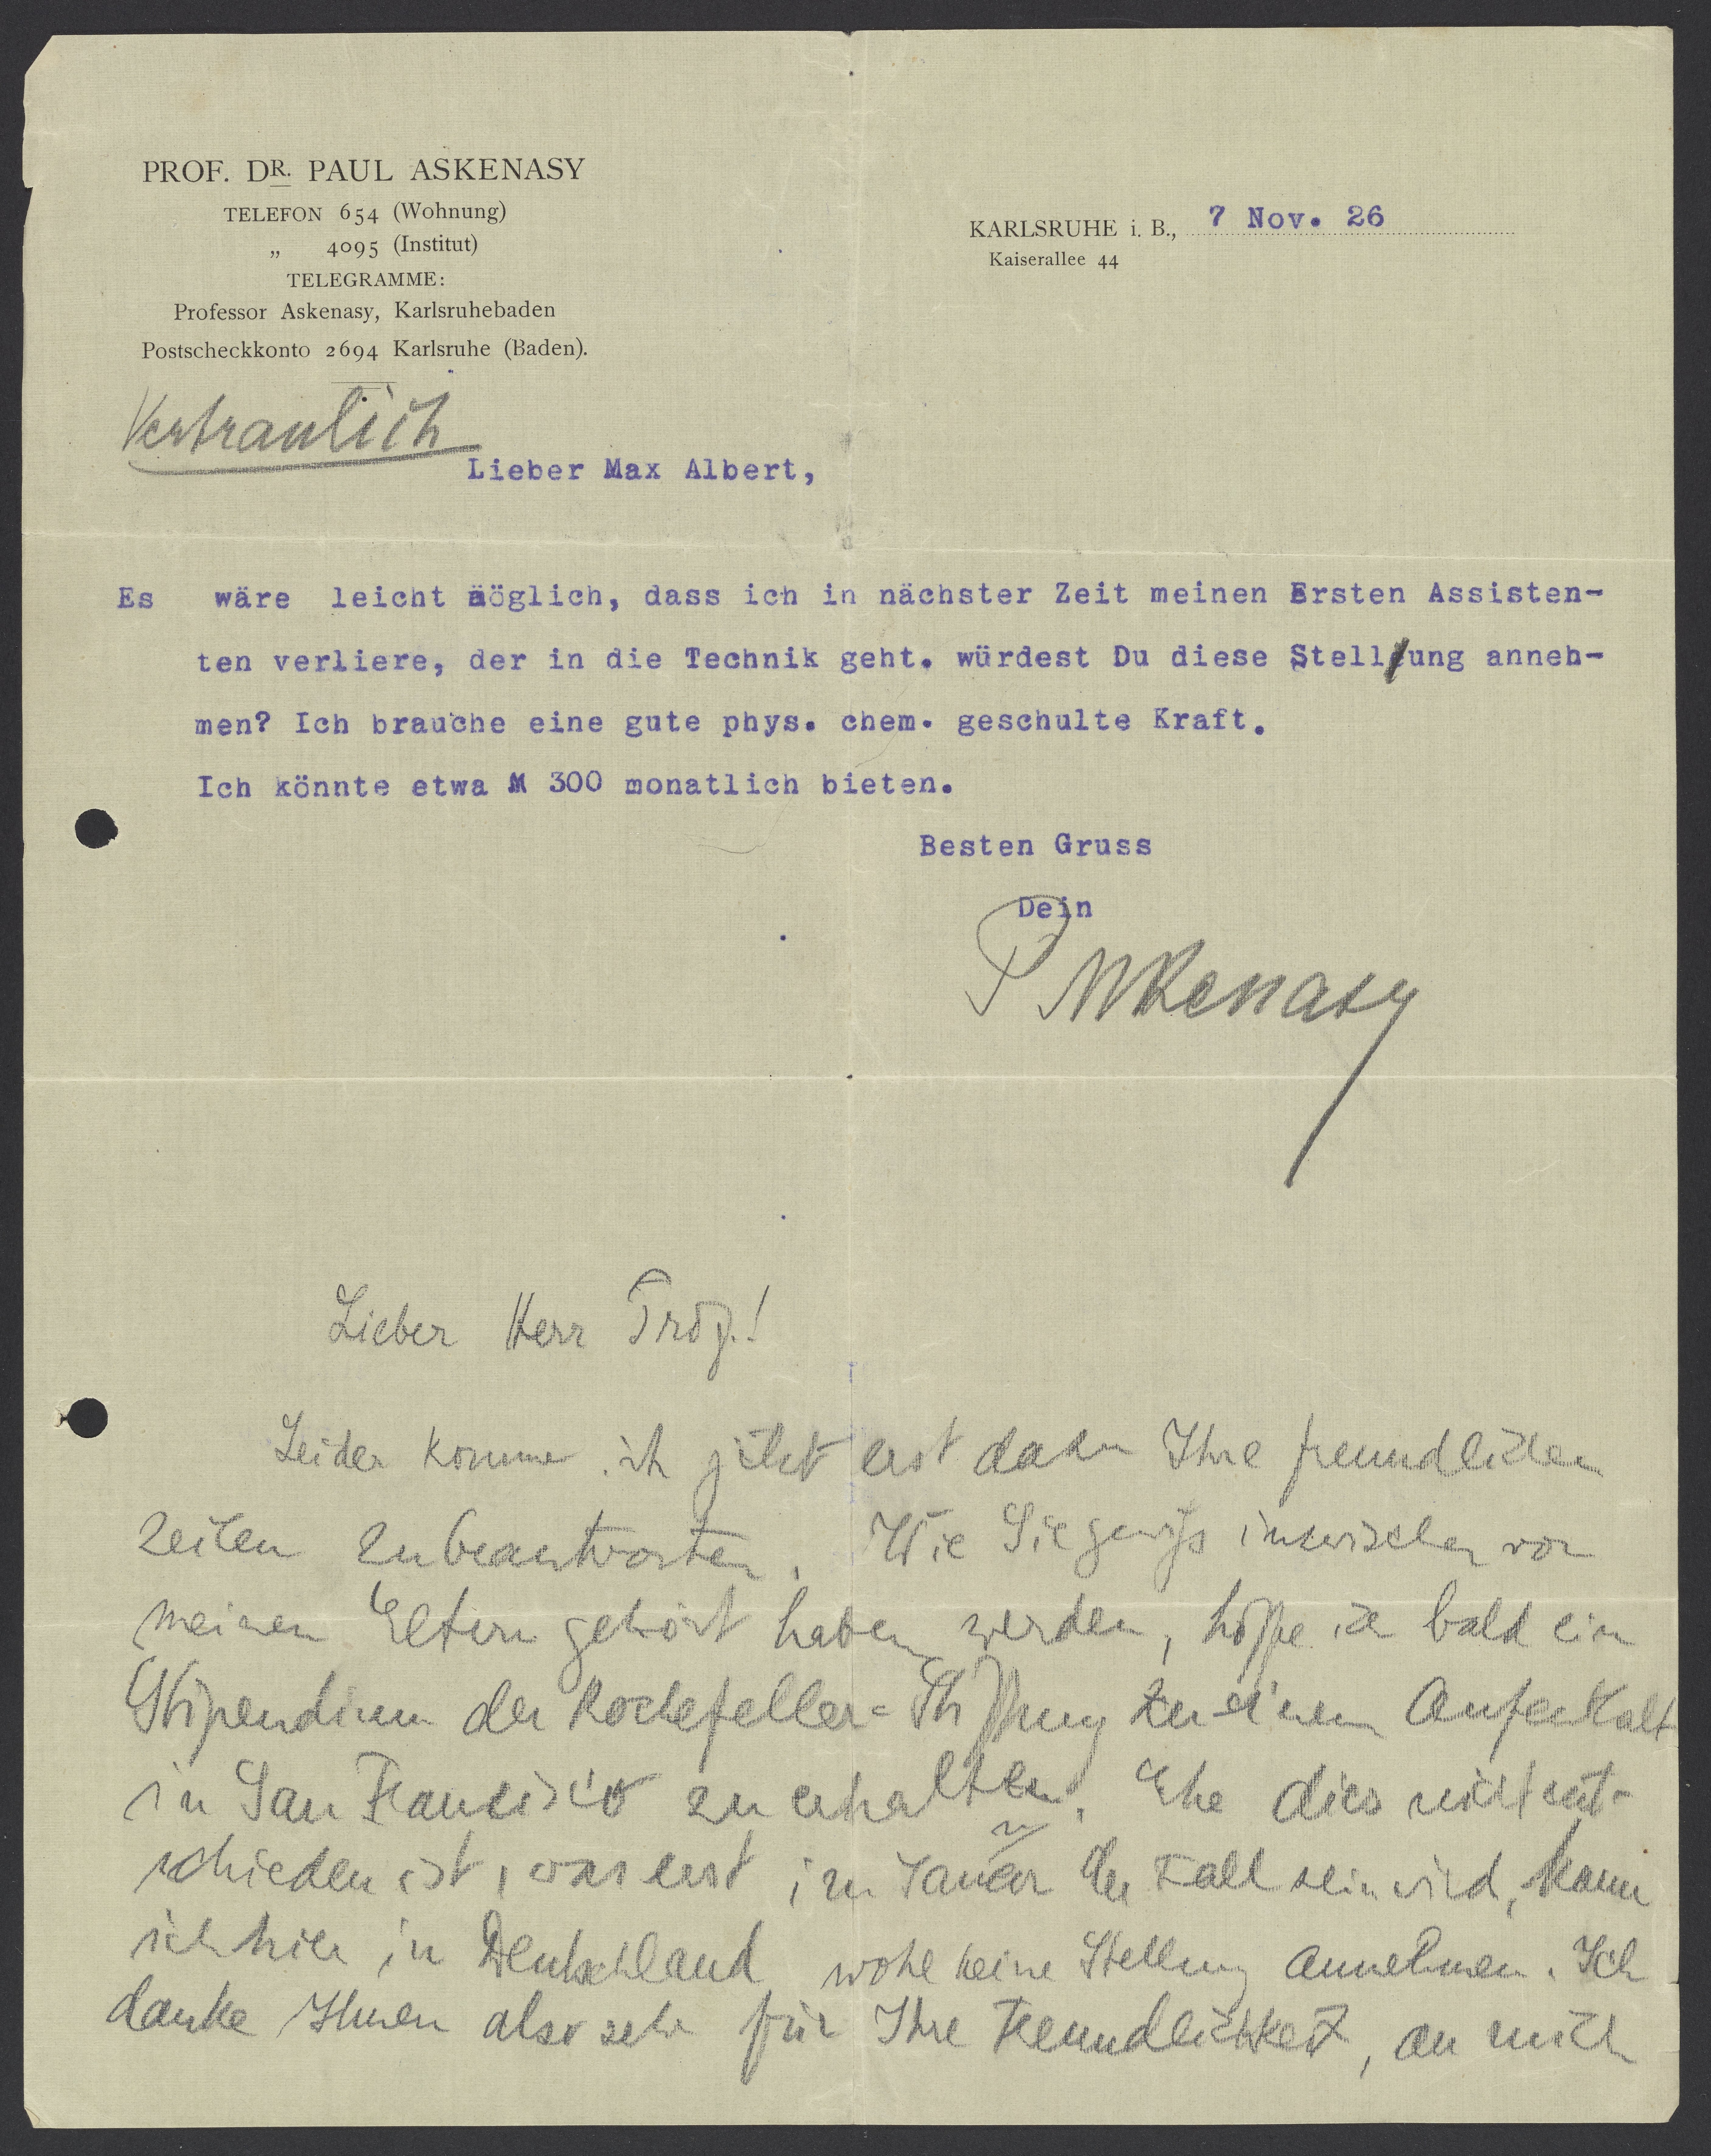 PROF. DR. PAUL ASKENASY
TELEFON 654 (Wohnung)
„ 4095 (Institut)
TELEGRAMME:
Professor Askenasy, Karlsruhebaden
Postscheckkonto 2694 Karlsruhe (Baden).
KARLSRUHE i. B., 7 Nov. 26
Kaiserallee 44
Vertraulich
Lieber Max Albert,
Es wäre leicht möglich, dass ich in nächster Zeit meinen Ersten Assisten-
ten verliere, der in die Technik geht. würdest Du diese Stellung anneh-
men? Ich brauche eine gute phys. chem. geschulte Kraft.
Ich könnte etwa M 300 monatlich bieten.
Besten Gruss
Dein
P Askenasy
Lieber Herr Prof.!
Leider komme ich jetzt erst dazu Ihre freundlichen
Zeilen zu beantworten. Wie Sie gewiss inzwischen von
meinen Eltern gehört haben werden, hoffe ich bald ein
Stipendium der Rockefeller=Stiftung zu einem Aufenthalt
in San Francisco zu erhalten. Ehe dies nicht ent-
schieden ist, was erst im Januar der Fall sein wird, kann
ich hier in Deutschland wohl keine Stellung annehmen. Ich
danke Ihnen also sehr für Ihre Freundlichkeit, an mich